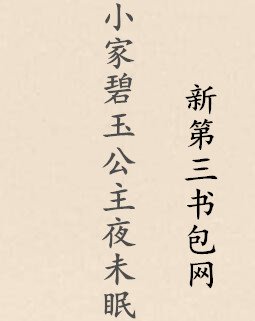 小家碧玉公主夜未眠
新第三书包网